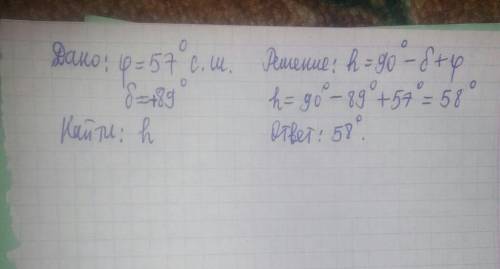 Дано: φ=57° с.ш.
δ=+89°
Найти: h
Решение: h=90°-δ+φ
h=90°-89°+57°=58°
Ответ: 58°.